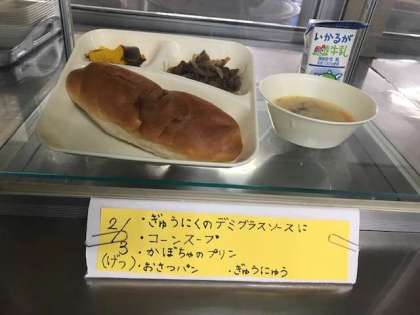 いかるが
牛乳
2/3 ・ぎゅうにくのデミグラスソースに
・コーンスープ
・かぼちゃのプリン
(げつ)・おさつパン ・ぎゅうにゅう